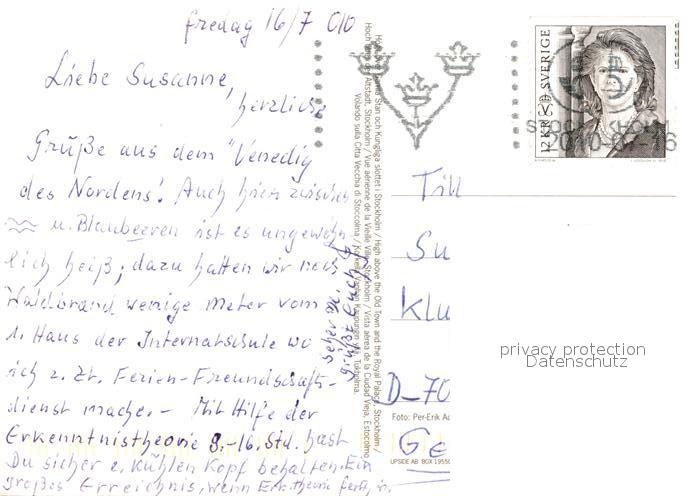 fredag 16/7 010
Liebe Susanne,
herzliche
Grüße aus dem "Venedig
des Nordens! Auch hier zwischen
u. Blaubeeren ist es ungewöhn
lich heiß; dazu hatten wir noch
Waldbrand wenige Meter vom
1. Haus der Internatschule wo
ich z. Zt. Ferien-Freundschafts-
dienst mache. - Mit Hilfe der
Erkenntnistheorie 8.-16. Std. hast
Du sicher e. kühlen Kopf behalten. Ein
großes Erreichnis, wenn
grüßt Euch
Stan och Kungliga slottet i Stockholm / High above the Old Town and the Royal Palace, Stockholm /
Altstadt, Stockholm / Vue aérienne de la Vieille Ville, Stockholm / Vista aérea de la Ciudad Vieja, Estocolmo
Volando sulla Citta Vecchia di Stoccolma
12 KR SVERIGE
2010-07-16
Till
Su
Klu
D-70
Ge
Foto: Per-Erik Ad
UPSIDE AB BOX 1955
privacy protection
Datenschutz